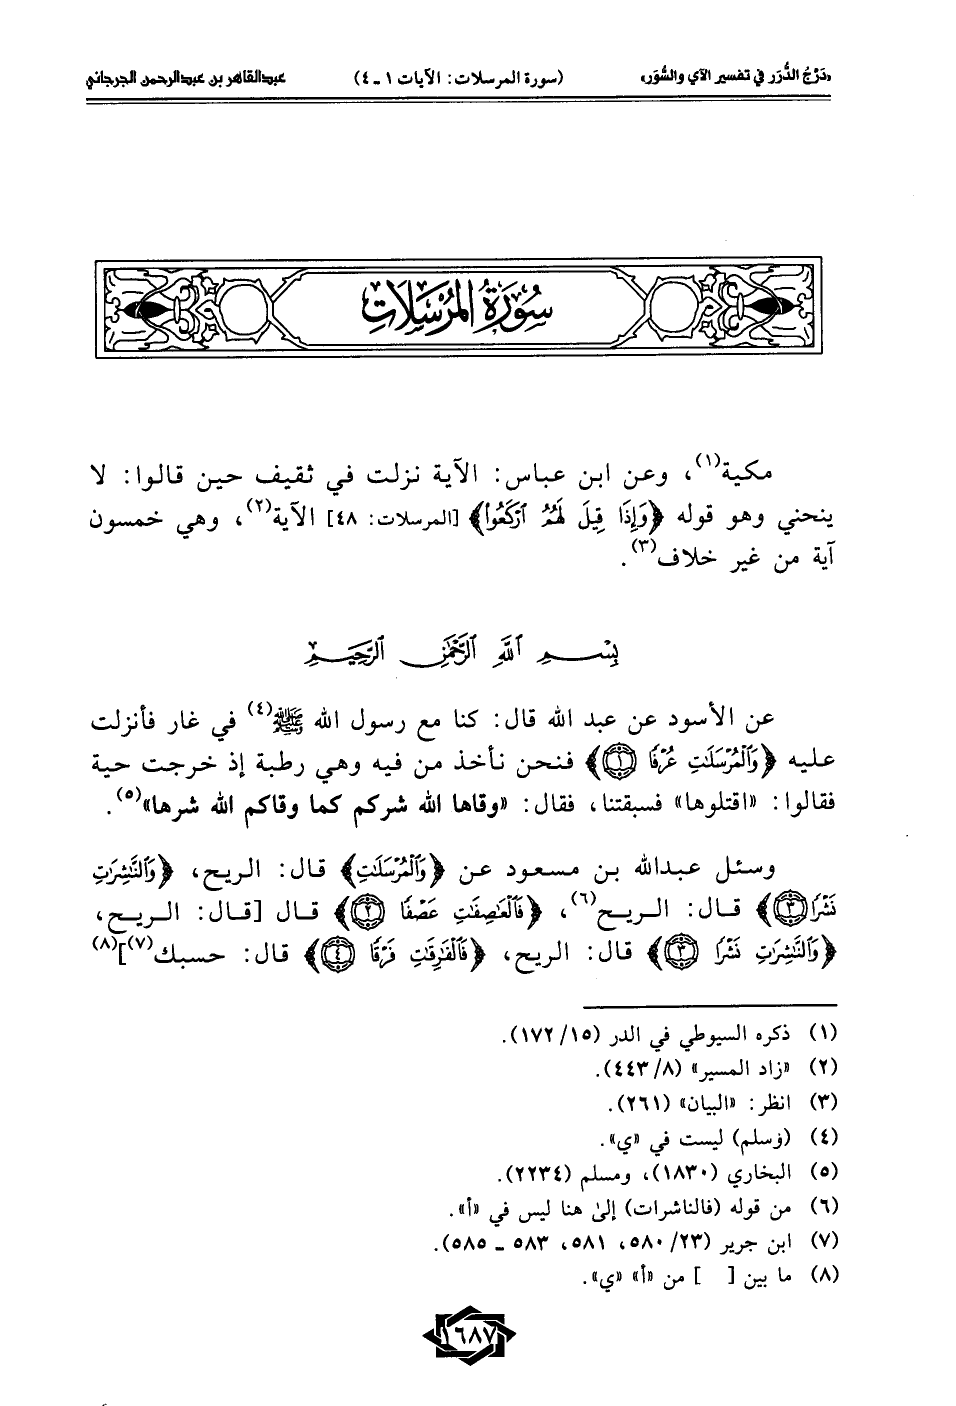 «دَرْجُ الدُّرَر في تفسير الآي والسُّوَر» (سورة المرسلات: الآيات ١ ـ ٤) عبدالقاهر بن عبدالرحمن الجرجاني
سُورَةُ المُرْسَلَات
مكية(١)، وعن ابن عباس: الآية نزلت في ثقيف حين قالوا: لا
ينحني وهو قوله ﴿وَإِذَا قِيلَ لَهُمُ ٱرْكَعُوا۟﴾ [المرسلات: ٤٨] الآية(٢)، وهي خمسون
آية من غير خلاف(٣).
بِسْمِ ٱللَّهِ ٱلرَّحْمَٰنِ ٱلرَّحِيمِ
عن الأسود عن عبد الله قال: كنا مع رسول الله ﷺ(٤) في غار فأنزلت
عليه ﴿وَٱلْمُرْسَلَٰتِ عُرْفًا ١﴾ فنحن نأخذ من فيه وهي رطبة إذ خرجت حية
فقالوا: «اقتلوها» فسبقتنا، فقال: «وقاها الله شركم كما وقاكم الله شرها»(٥).
وسئل عبدالله بن مسعود عن ﴿وَٱلْمُرْسَلَٰتِ﴾ قال: الريح، ﴿وَٱلنَّٰشِرَٰتِ
نَشْرًا ٣﴾ قال: الريح(٦)، ﴿فَٱلْعَٰصِفَٰتِ عَصْفًا ٢﴾ قال [قال: الريح،
﴿وَٱلنَّٰشِرَٰتِ نَشْرًا ٣﴾ قال: الريح، ﴿فَٱلْفَٰرِقَٰتِ فَرْقًا ٤﴾ قال: حسبك(٧)](٨)
(١) ذكره السيوطي في الدر (١٧٢/١٥).
(٢) «زاد المسير» (٤٤٣/٨).
(٣) انظر: «البيان» (٢٦١).
(٤) (وسلم) ليست في «ي».
(٥) البخاري (١٨٣٠)، ومسلم (٢٢٣٤).
(٦) من قوله (فالناشرات) إلىٰ هنا ليس في «أ».
(٧) ابن جرير (٥٨٠/٢٣، ٥٨١، ٥٨٣ ـ ٥٨٥).
(٨) ما بين [ ] من «أ» «ي».
١٦٨٧